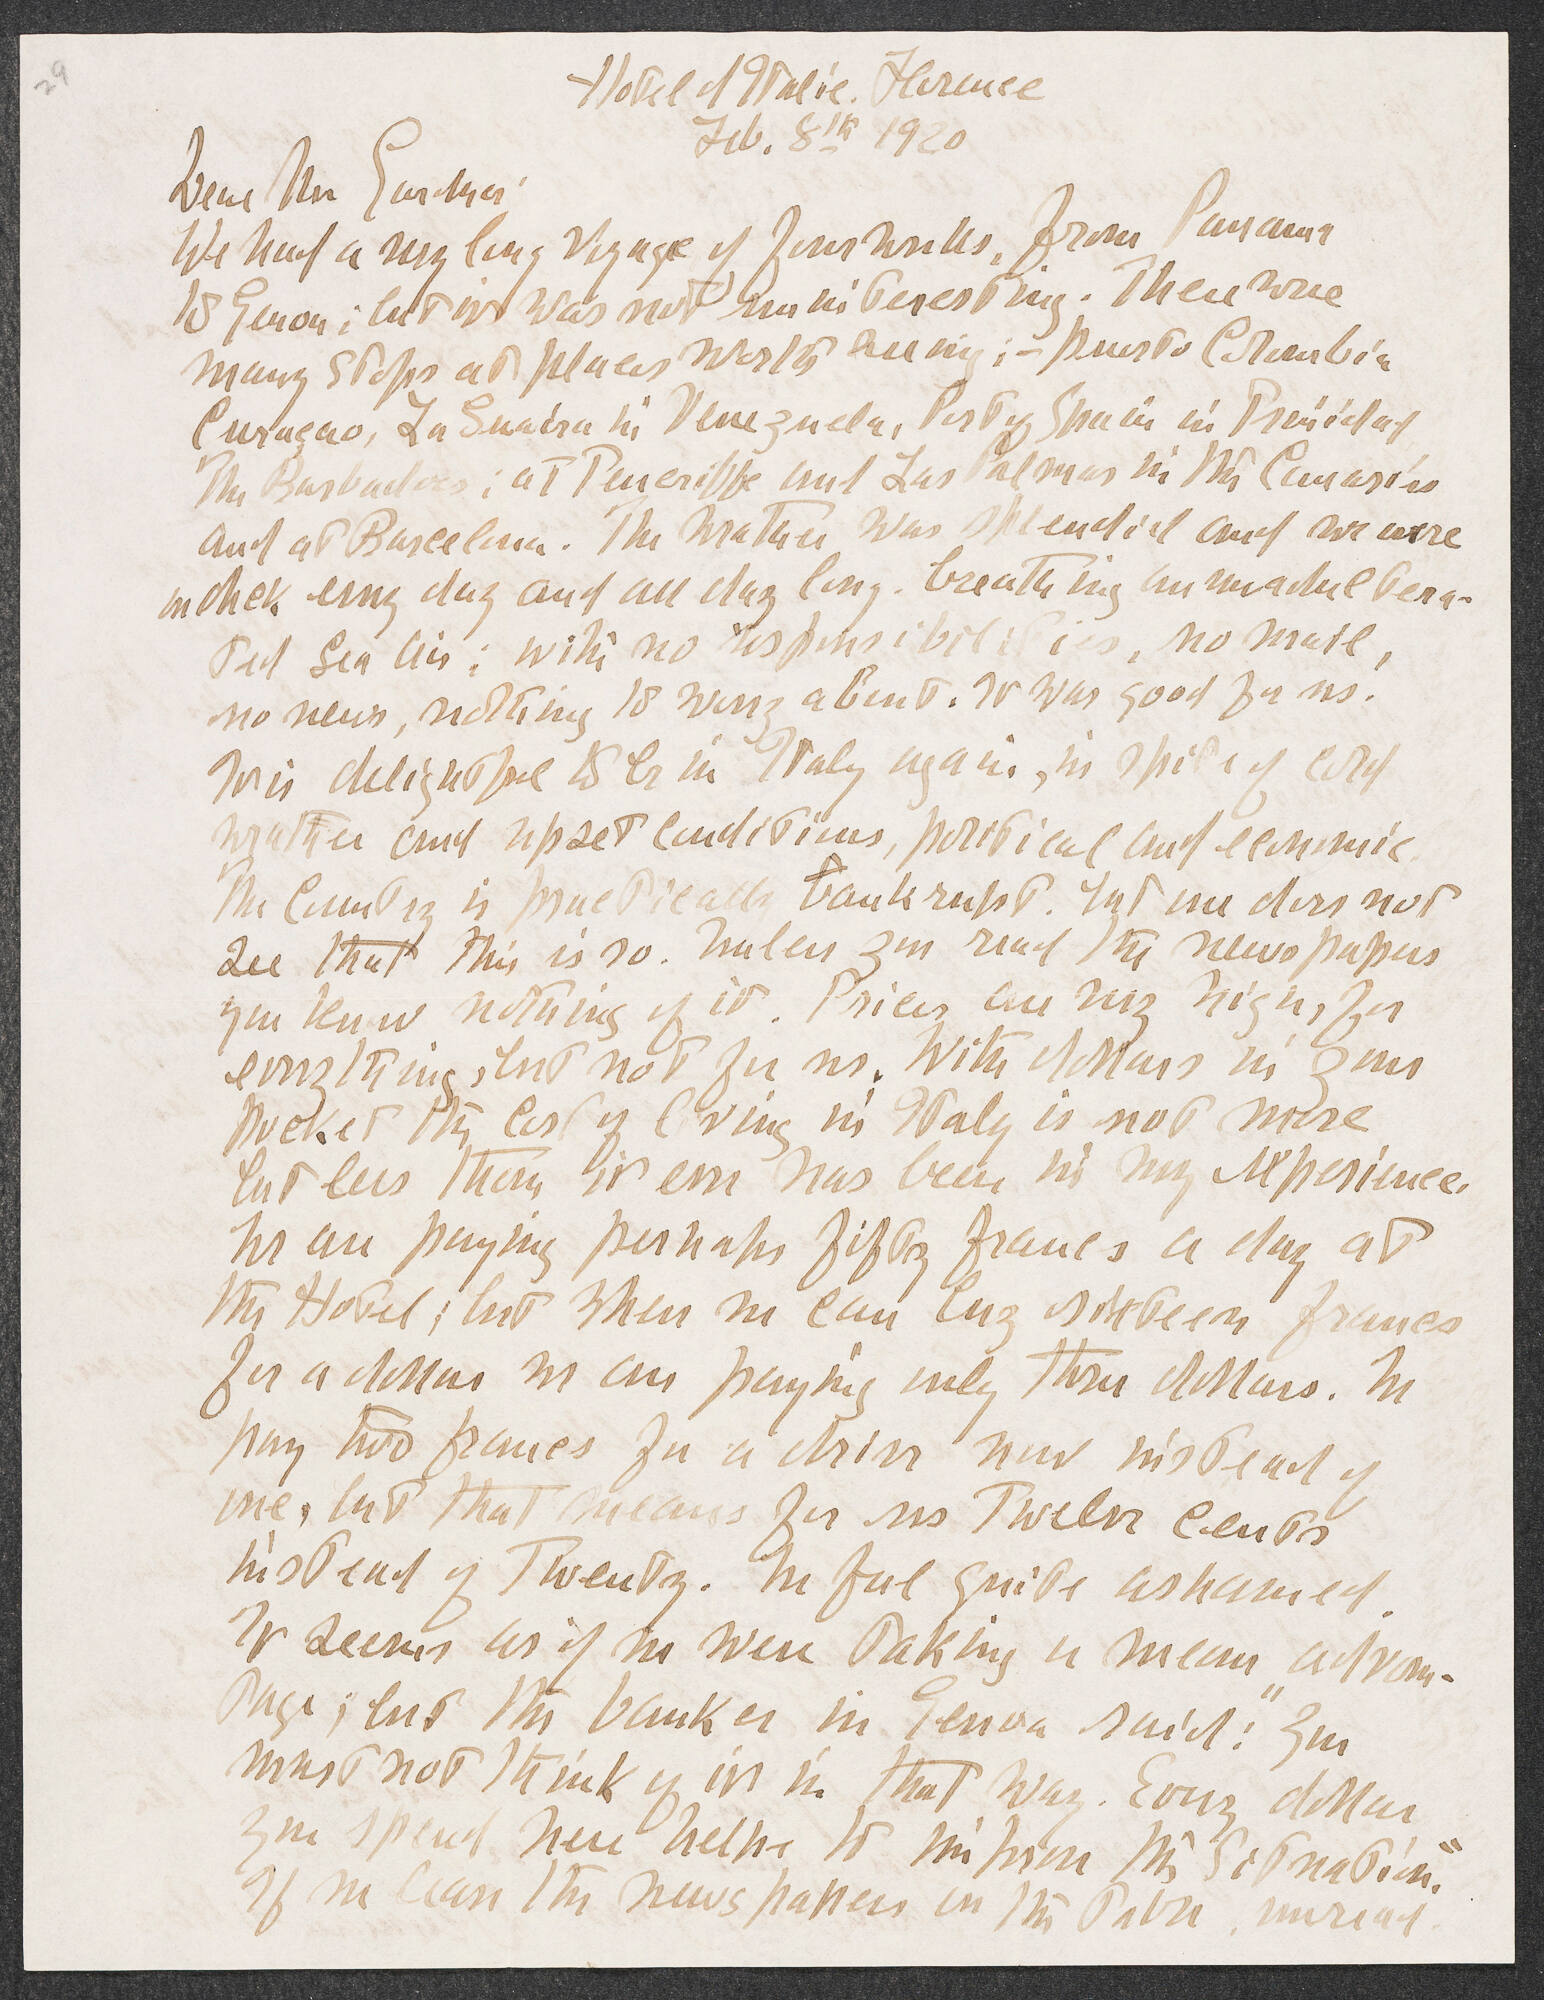 29
Hotel d'Italie. Florence
Feb. 8th 1920
Dear Mrs Gardner:
We had a very long voyage of four weeks, from Panama
to Genoa; but it was not uninteresting. There were
many stops at places worth seeing;- Puerto Colombia
Curaçao, La Guaira in Venezuela, Port of Spain in Trinidad
The Barbadoes; at Teneriffe and Las Palmas in the Canaries
and at Barcelona. The weather was splendid and we were
on deck every day and all day long. breathing an unadultera-
ted sea air; with no responsibilities, no mail,
no news, nothing to worry about. It was good for us.
It is delightful to be in Italy again, in spite of cold
weather and upset conditions, political and economic.
The Country is practically bankrupt. but one does not
see that this is so. Unless you read the newspapers
you know nothing of it. Prices are very high, for
everything, but not for us. With dollars in your
pocket the cost of living in Italy is not more
but less than it ever has been in my experience.
We are paying perhaps fifty francs a day at
the Hotel; but when we can buy sixteen francs
for a dollar we are paying only three dollars. We
pay two francs for a drive now instead of
one, but that means for us Twelve cents
instead of Twenty. We feel quite ashamed.
It seems as if we were taking a mean advan-
tage; but the banker in Genoa said: "You
must not think of it in that way. Every dollar
you spend here helps to improve the situation."
If we leave the newspapers on the table, unread